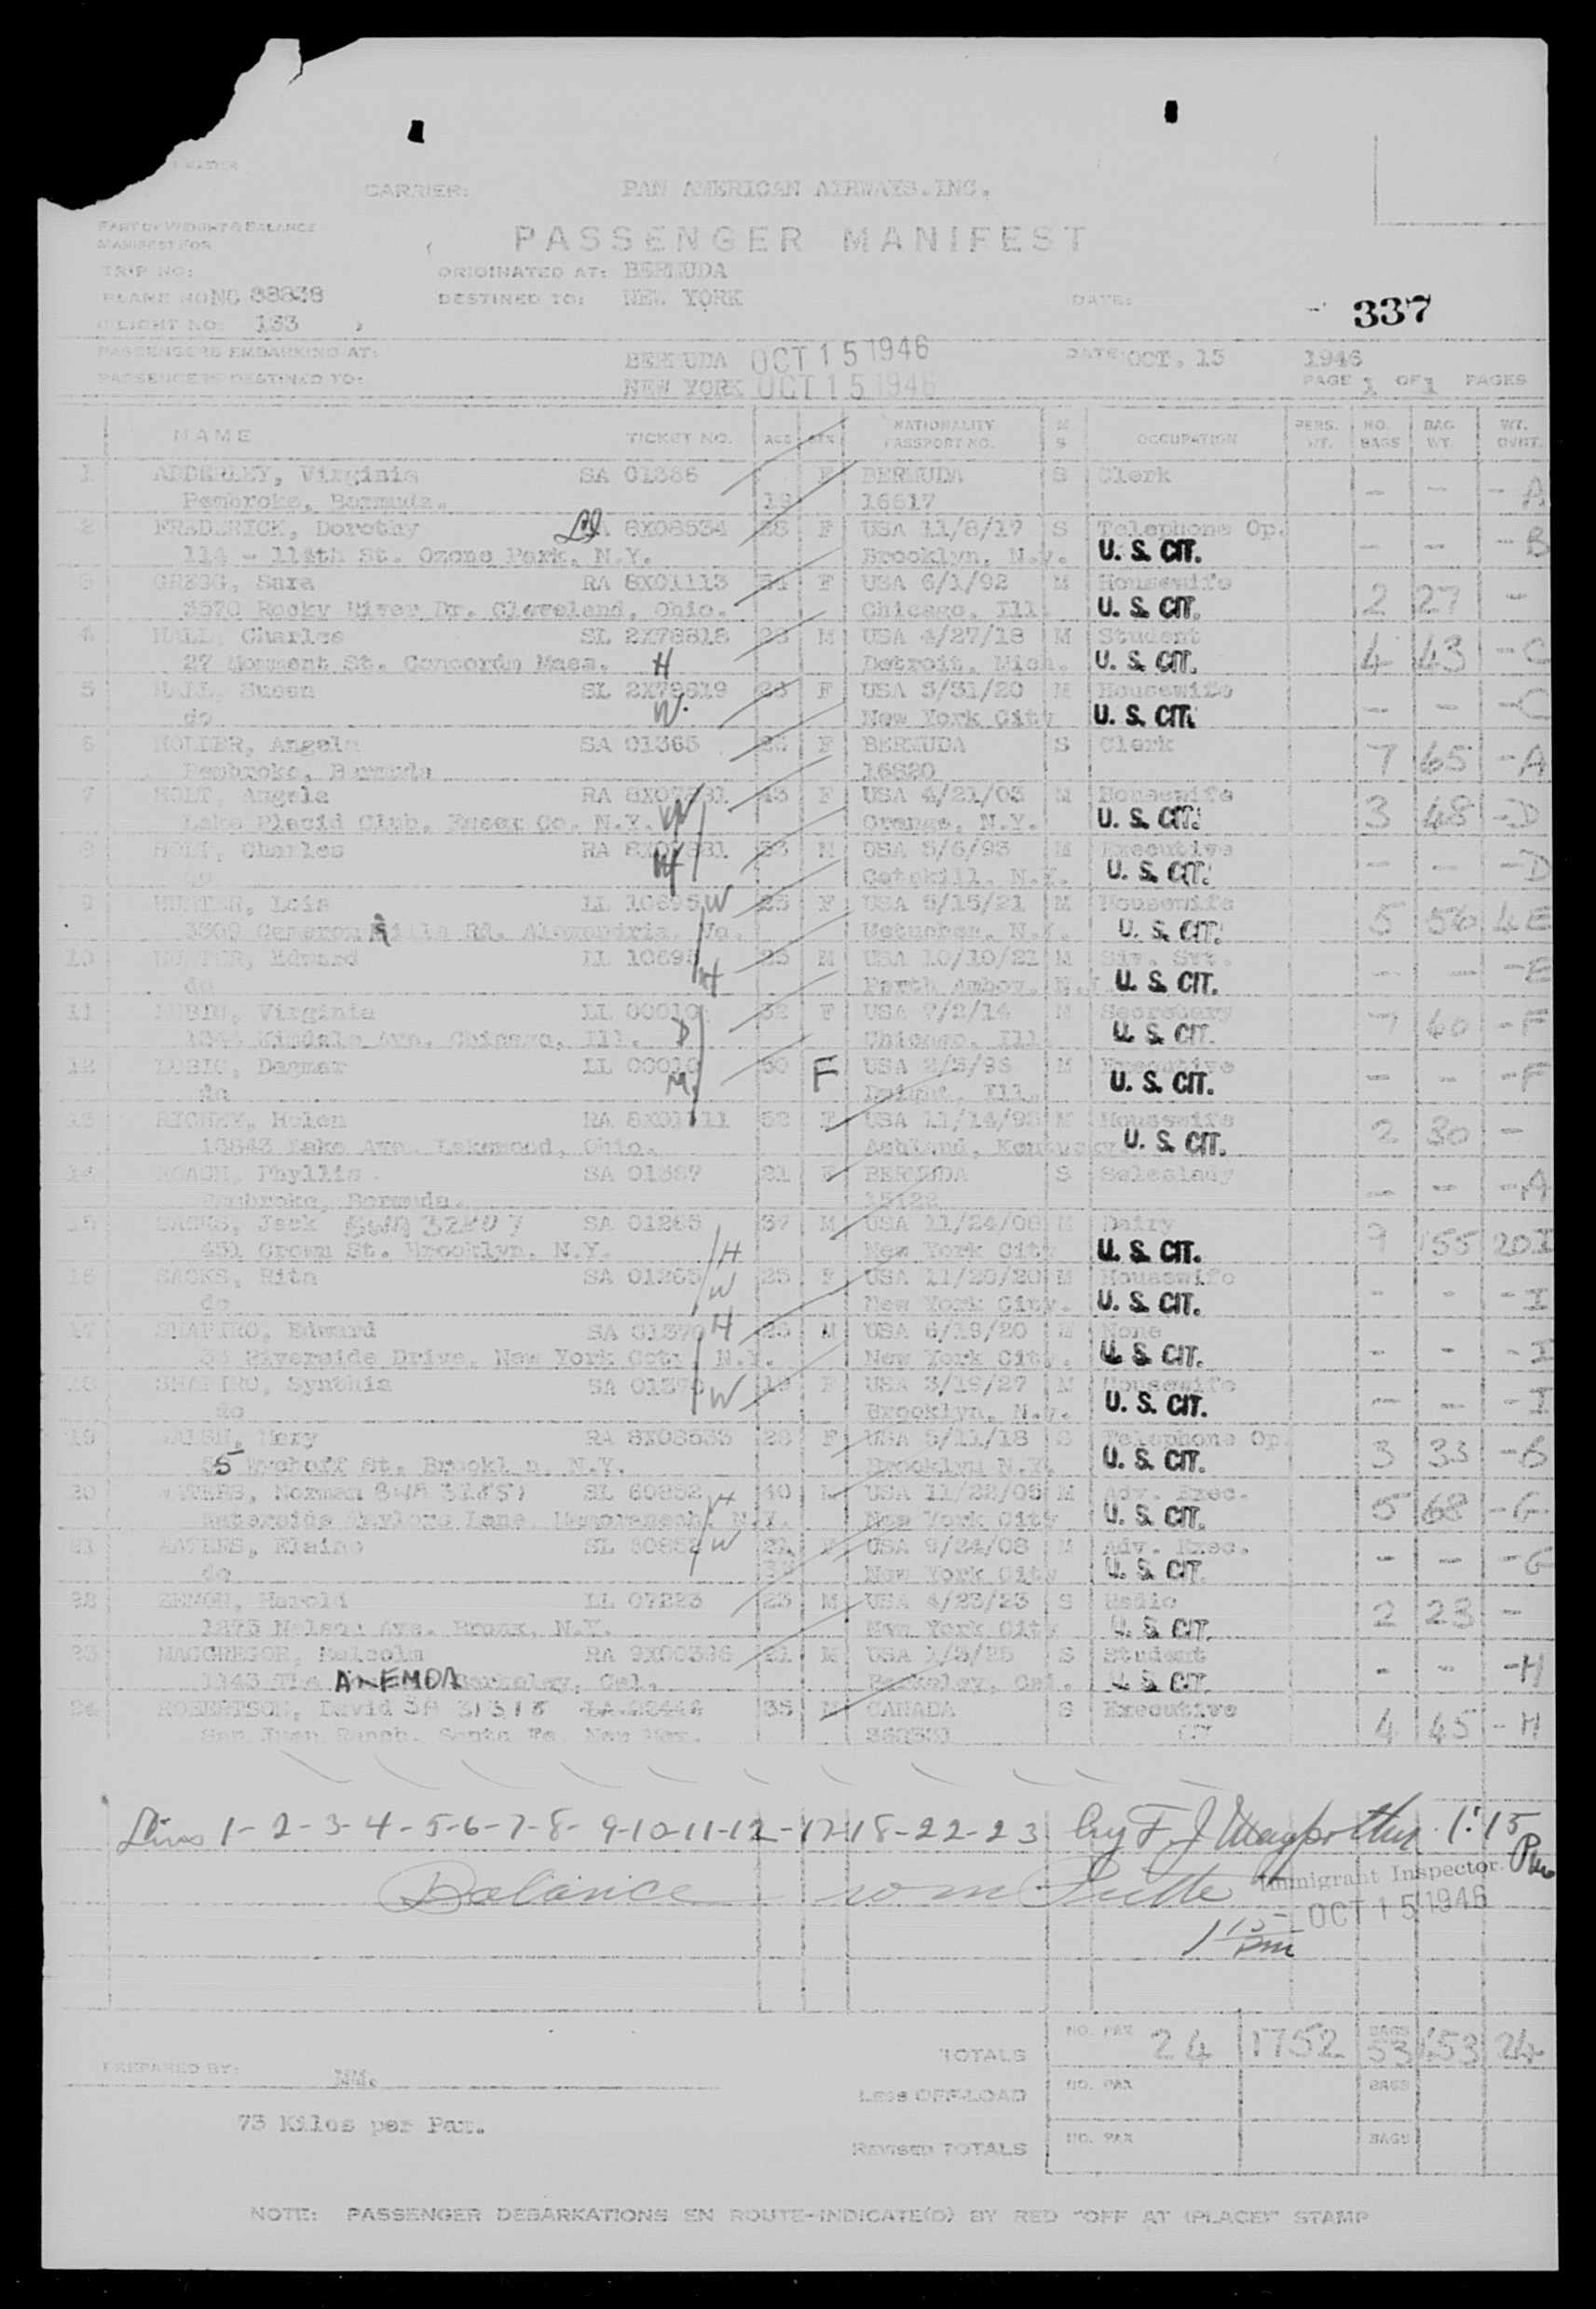 MASTER
CARRIER: PAN AMERICAN AIRWAYS.INC.
PART OF WEIGHT & BALANCE
MANIFEST FOR
PASSENGER MANIFEST
TRIP NO: ORIGINATED AT: BERMUDA
PLANE NO NC 88838 DESTINED TO: NEW YORK DATE: 337
FLIGHT NO. 133
PASSENGERS EMBARKING AT: BERMUDA OCT 15 1946 DATE OCT. 15 1946
PASSENGERS DESTINED TO: NEW YORK OCT 15 1946 PAGE 1 OF 1 PAGES
NAME TICKET NO. AGE SEX NATIONALITY PASSPORT NO. M S OCCUPATION PERS. WT. NO. BAGS BAG WT. WT. OVRT.
1 ADDERLEY, Virginia SA 01386 F BERMUDA S Clerk
Pembroke, Bermuda. 19 16617 - - - A
2 FREDERICK, Dorothy 8X08534 28 F USA 11/8/17 S Telephone Op.
114 - 114th St. Ozone Park, N.Y. Brooklyn, N.Y. U. S. CIT. - - - B
3 GREGG, Sara RA 8X01113 54 F USA 6/1/92 M Housewife
3570 Rocky River Dr. Cleveland, Ohio. Chicago, Ill. U. S. CIT. 2 27 -
4 HALL, Charles SL 2X78818 28 M USA 4/27/18 M Student
27 Monument St. Concord, Mass. H Detroit, Mich. U. S. CIT. 4 43 - C
5 HALL, Susan SL 2X78819 26 F USA 5/31/20 M Housewife
do W. New York City U. S. CIT. - - - C
6 Angela SA 01365 26 F BERMUDA S Clerk
Pembroke, Bermuda 16820 7 65 - A
7 HOLT, Angela RA 43 F USA 4/21/03 M Housewife
Lake Placid Club, Essex Co. N.Y. W Orange, N.Y. U. S. CIT. 3 48 - D
8 HOLT, Charles RA 53 M USA 5/6/93 M Executive
do H Catskill, N.Y. U. S. CIT. - - - D
9 HUNTER, Lois LL 10695 W 25 F USA 5/15/21 M Housewife
3509 Cameron Mills Rd. Alexandria, Va. Metuchen, N.J. U. S. CIT. 5 56 4 E
10 HUNTER, Edward LL 10695 25 M USA 10/10/21 M Civ. Svt.
do H Perth Amboy, N.J. U. S. CIT. - - - E
11 Virginia LL 00010 32 F USA 7/2/14 M Secretary
Ave. Chicago, Ill. D Chicago, Ill. U. S. CIT. 7 60 - F
12 Dagmar LL 00010 50 F USA 2/3/96 M Executive
do M. Dwight, Ill. U. S. CIT. - - - F
13 RICHEY, Helen RA 52 F USA 11/14/93 M Housewife
Lake Ave. Lakewood, Ohio. Ashland, Kentucky U. S. CIT. 2 30 -
14 ROACH, Phyllis SA 01387 21 F BERMUDA S Saleslady
Pembroke, Bermuda. 15122 - - - A
15 SACKS, Jack SA 01265 37 M USA 11/24/08 M Dairy
451 Crown St. Brooklyn, N.Y. H New York City U. S. CIT. 9 155 20 I
16 SACKS, Rita SA 01265 25 F USA 11/20/20 M Housewife
do W New York City. U. S. CIT. - - - I
17 SHAPIRO, Edward SA 01370 H 26 M USA 6/19/20 M None
Riverside Drive, New York City, N.Y. New York City. U. S. CIT. - - - I
18 SHAPIRO, Synthia SA 01370 19 F USA 3/19/27 M Housewife
do W Brooklyn, N.Y. U. S. CIT. - - - I
19 WALSH, Mary RA 8X08533 28 F USA 5/11/18 S Telephone Op.
55 Wyckoff St. Brooklyn, N.Y. Brooklyn N.Y. U. S. CIT. 3 33 - B
20 WATERS, Norman SL 60852 H 40 M USA 11/22/05 M Adv. Exec.
Waterside Taylors Lane, N.Y. New York City U. S. CIT. 5 68 - G
21 WATERS, Elaine SL 60852 W F USA 9/24/08 M Adv. Exec.
do New York City U. S. CIT. - - - G
22 Harold LL 07223 23 M USA 4/23/23 S Radio
1275 Nelson Ave. Bronx, N.Y. New York City U. S. CIT. 2 23 -
23 MACGREGOR, Malcolm RA 21 M USA 1/3/25 S Student
1143 The Berkeley, Cal. Berkeley, Cal. U. S. CIT. - - - H
24 ROBERTSON, David SA 31318 35 M CANADA S Executive
San Juan Ranch, Santa Fe New Mex. 4 45 - H
Lines 1-2-3-4-5-6-7-8-9-10-11-12-17-18-22-23 by F. J. 1:15 Pm
Balance
Immigrant Inspector
OCT 15 1946
1 15 pm
TOTALS NO. PAX 24 1752 BAGS 53 653 24
PREPARED BY:
Less OFF-LOAD NO. PAX BAGS
73 Kilos per Pax.
Revised TOTALS NO. PAX BAGS
NOTE: PASSENGER DEBARKATIONS EN ROUTE-INDICATE(D) BY RED "OFF AT (PLACE)" STAMP